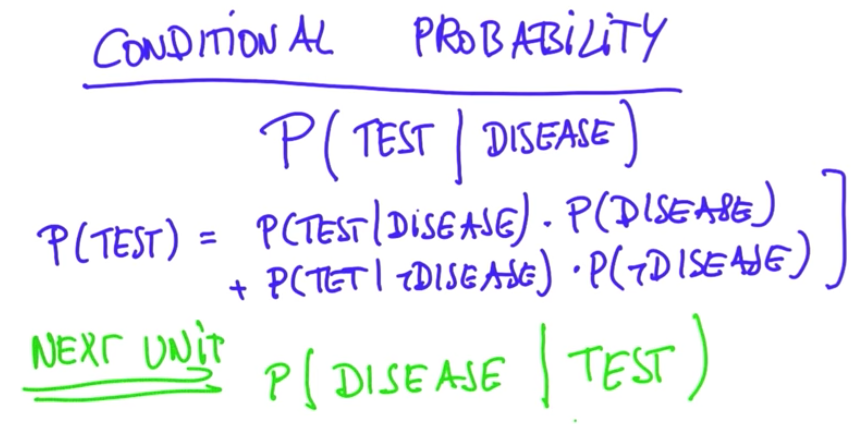 CONDITIONAL PROBABILITY
P(TEST | DISEASE)
P(TEST) = P(TEST|DISEASE) · P(DISEASE)
+ P(TET|¬DISEASE) · P(¬DISEASE)]
NEXT UNIT P(DISEASE | TEST)